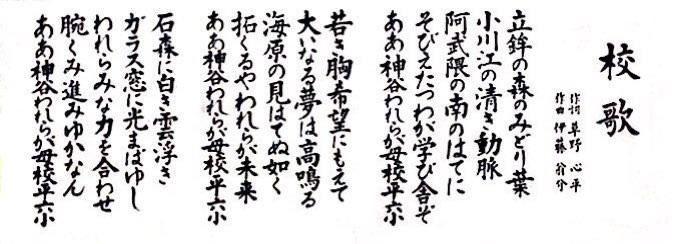 校歌
作詞 草野 心平
作曲 伊藤 翁介
立鉾の森のみどり葉
小川江の清き動脈
阿武隈の南のはてに
そびえたつわが学び舎ぞ
ああ神谷われらが母校平六小
若き胸希望にもえて
大いなる夢は高鳴る
海原の見はてぬ如く
拓くるやわれらが未来
ああ神谷われらが母校平六小
石森に白き雲浮き
ガラス窓に光まばゆし
われらみな力を合わせ
腕くみ進みゆかなん
ああ神谷われらが母校平六小